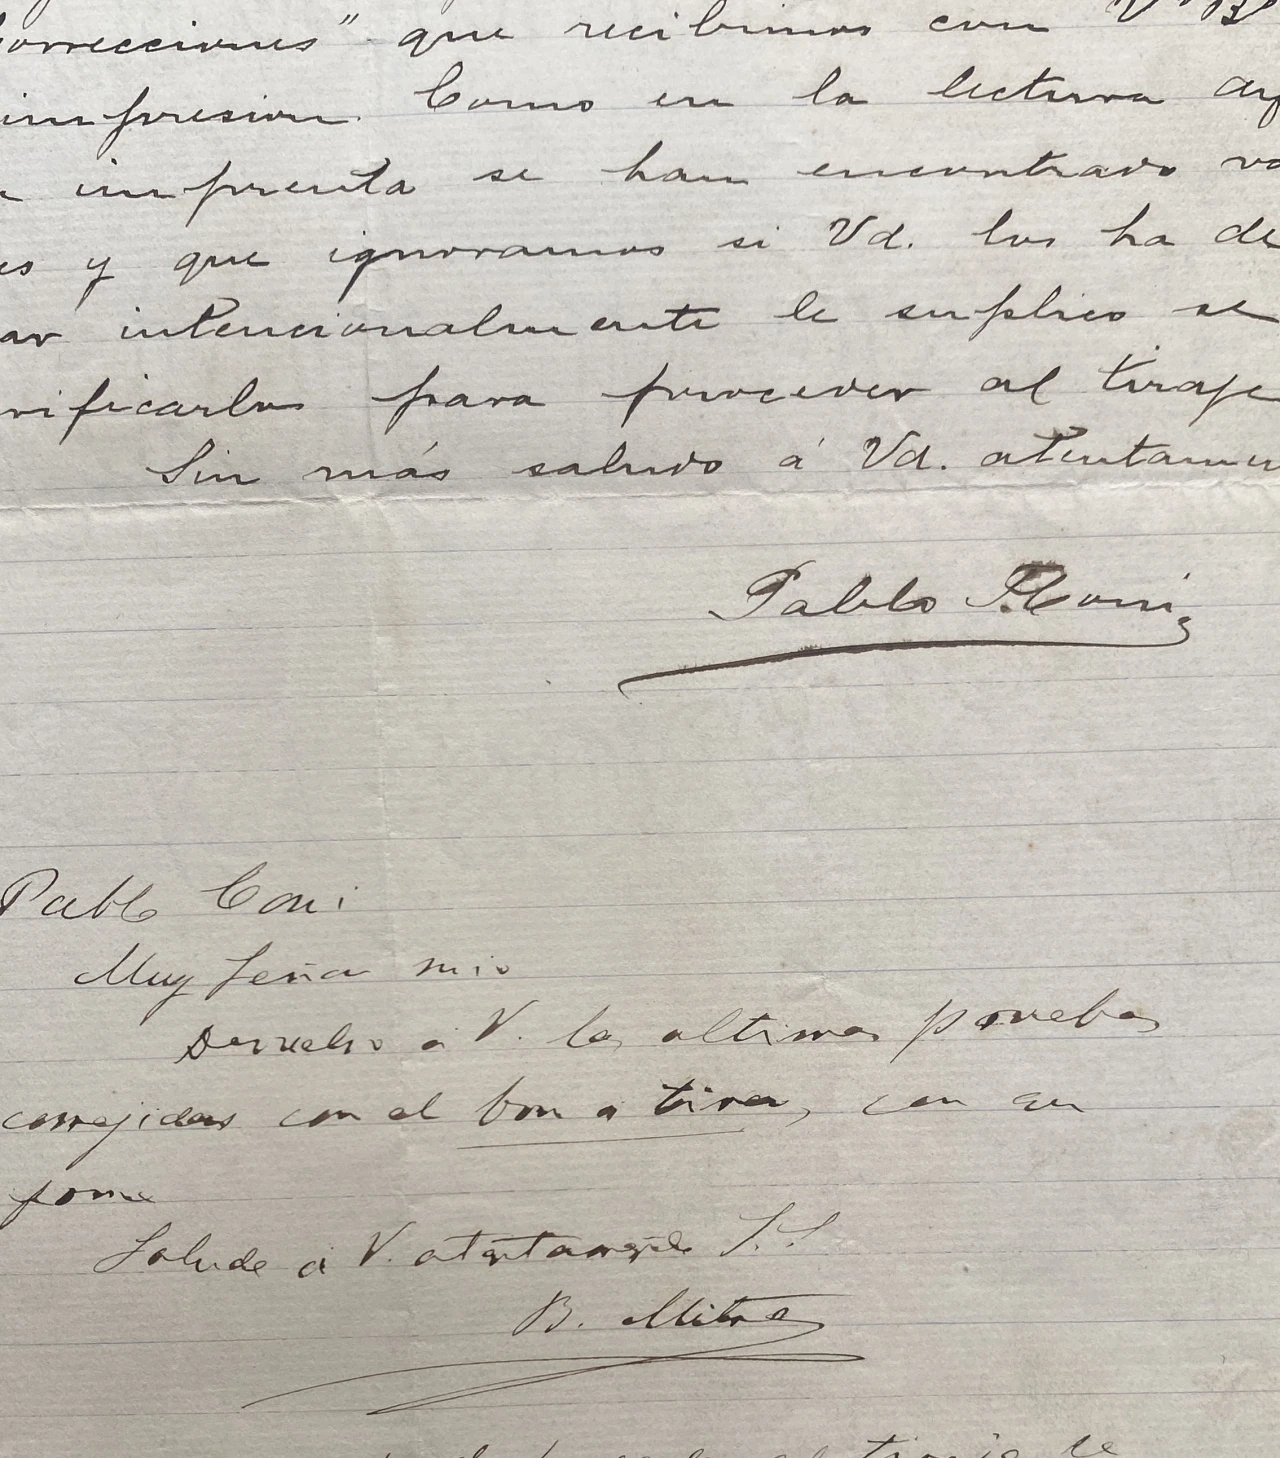 correcciones" que recibimos con V° B°
impresion. Como en la lectura
imprenta se han encontrado
es y que ignoramos si Vd. los ha de
ar intencionalmente le suplico se
rificarlos para proceder al tiraje
Sin más saludo á Vd. atentamen
Pablo E. Coni
Pablo Coni
Muy Señor mio
Devuelvo a V. las ultimas pruebas
correjidas con el bon a tirer, con su
firma
Saludo á V. atentamente S.S.
B. Mitre
el tiraje de